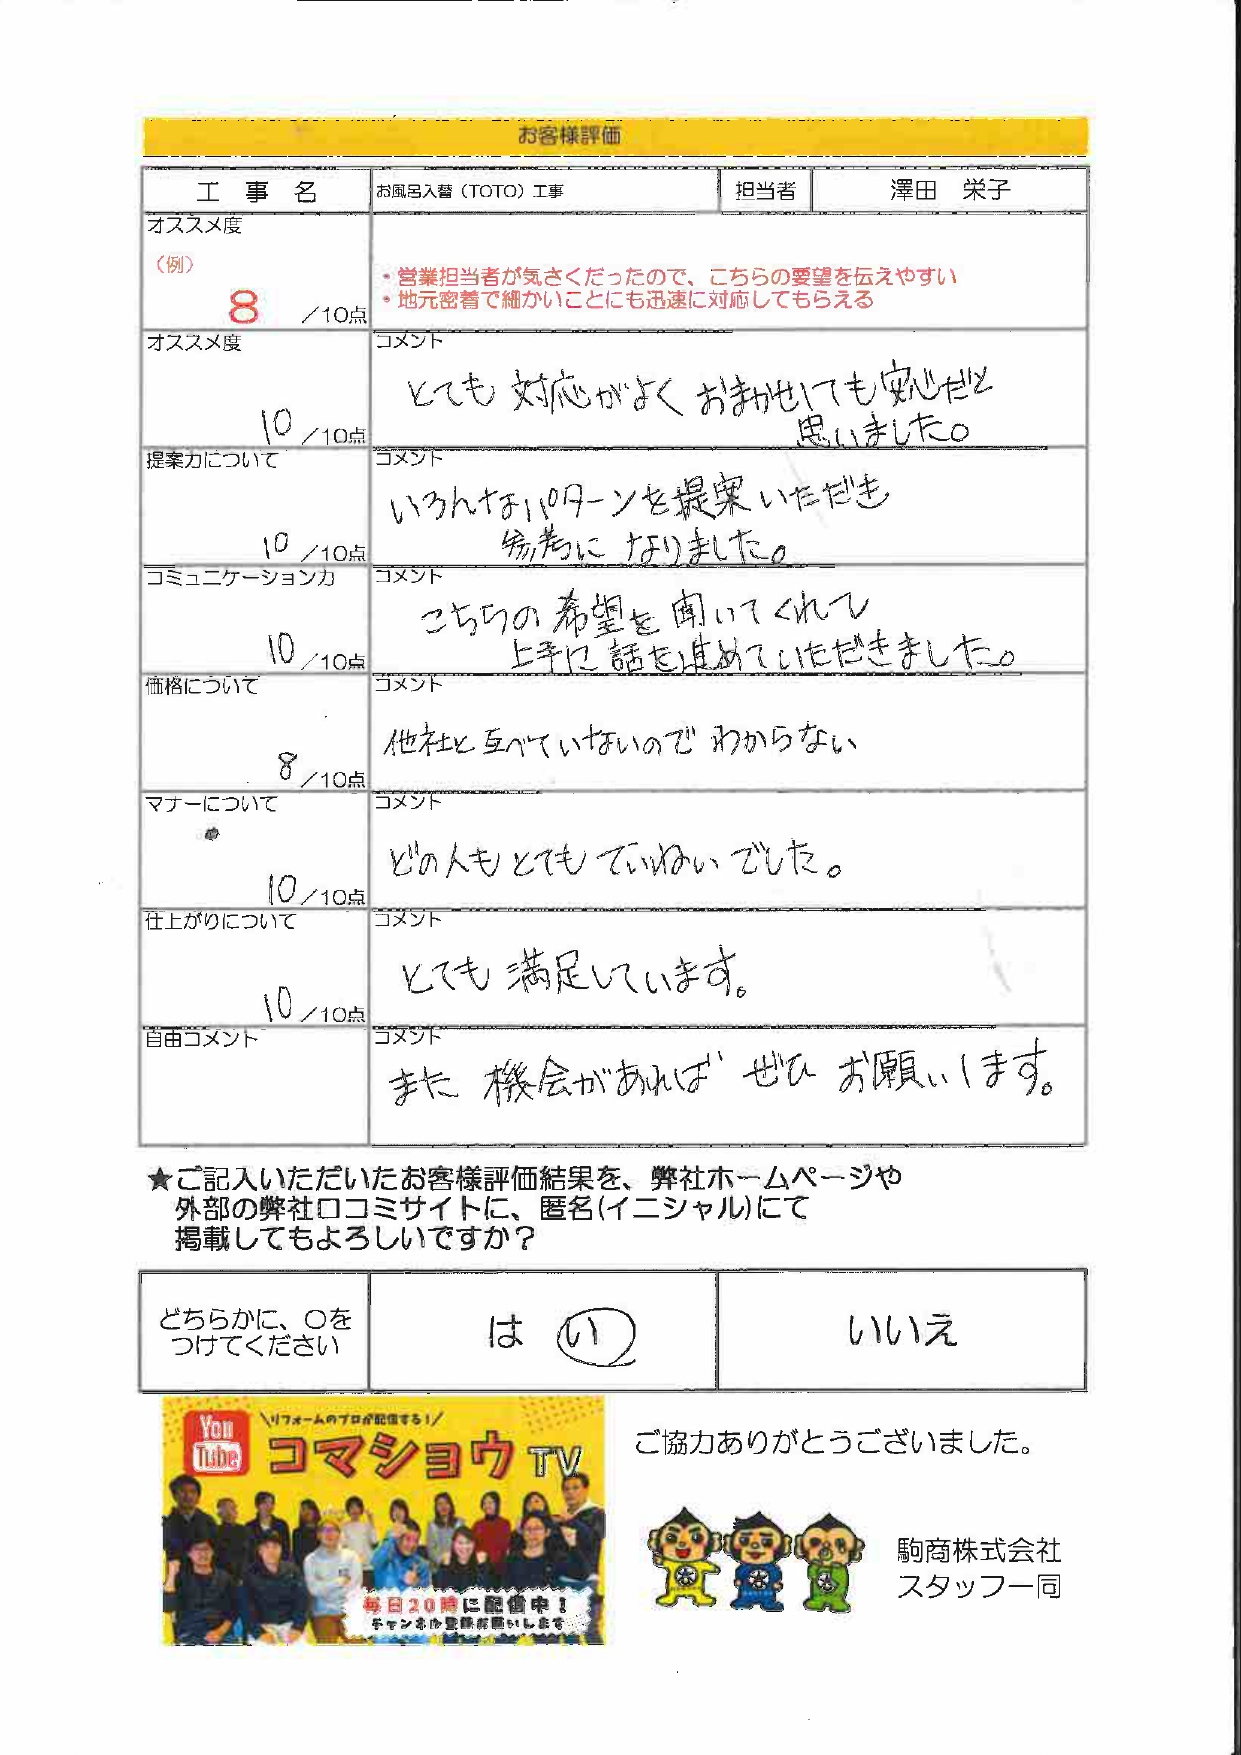 お客様評価
工 事 名 お風呂入替（TOTO）工事 担当者 澤田 栄子
オススメ度
（例）
8 ／10点
・営業担当者が気さくだったので、こちらの要望を伝えやすい
・地元密着で細かいことにも迅速に対応してもらえる
オススメ度
10 ／10点
コメント
とても 対応がよく おまかせしても安心だと
思いました。
提案力について
10 ／10点
コメント
いろんなパターンを提案いただき
参考に なりました。
コミュニケーション力
10 ／10点
コメント
こちらの 希望を 聞いてくれて
上手に 話を進めていただきました。
価格について
8 ／10点
コメント
他社と 互べていないので わからない
マナーについて
10 ／10点
コメント
どの人も とても ていねい でした。
仕上がりについて
10 ／10点
コメント
とても 満足しています。
自由コメント
コメント
また 機会があれば ぜひ お願いします。
★ご記入いただいたお客様評価結果を、弊社ホームページや
外部の弊社口コミサイトに、匿名(イニシャル)にて
掲載してもよろしいですか？
どちらかに、〇を
つけてください
はい
いいえ
You
Tube
\リフォームのプロが配信する！/
コマショウTV
毎日20時に配信中！
チャンネル登録お願いします
ご協力ありがとうございました。
駒商株式会社
スタッフ一同